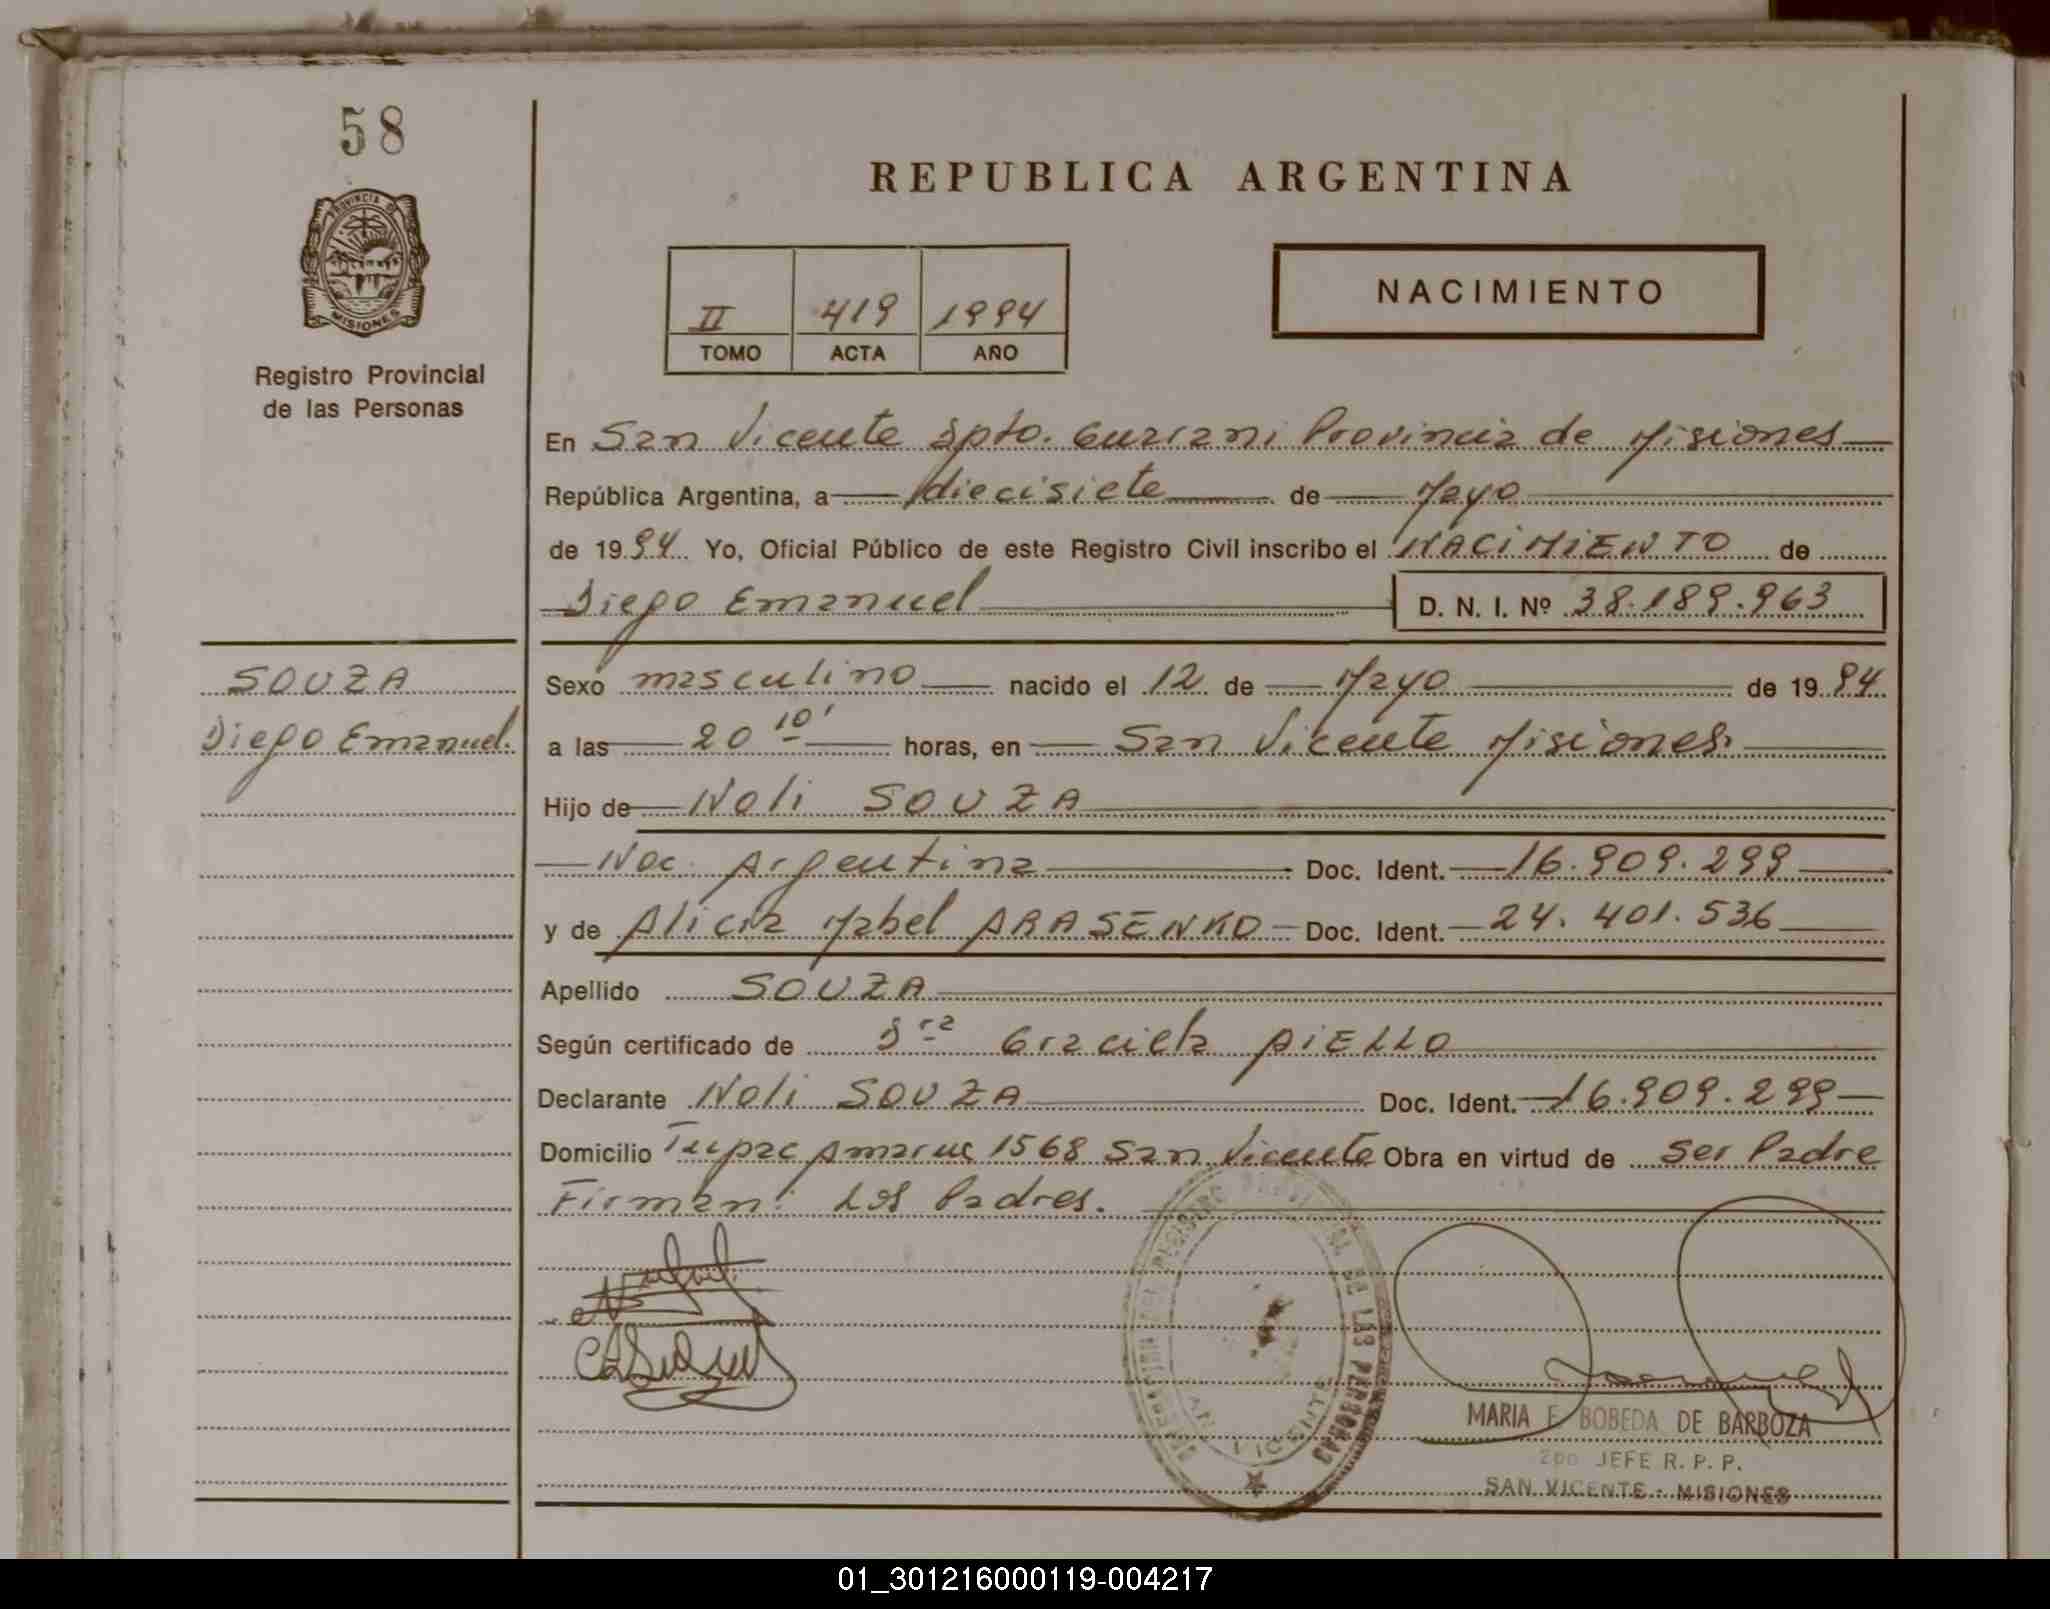 58
REPUBLICA ARGENTINA
PROVINCIA DE
MISIONES
Registro Provincial
de las Personas
II 419 1994
TOMO ACTA AÑO
NACIMIENTO
En San Vicente Dpto. Guarani Provincia de Misiones
República Argentina, a diecisiete de Mayo
de 1994 Yo, Oficial Público de este Registro Civil inscribo el NACIMIENTO de
Diego Emanuel D. N. I. Nº 38.189.963
SOUZA
Diego Emanuel.
Sexo masculino nacido el 12 de Mayo de 1994
a las 20 10' horas, en San Vicente Misiones.
Hijo de Noli SOUZA
Nac. Argentina Doc. Ident. 16.909.299
y de Alicia Mabel ARASENKO Doc. Ident. 24.401.536
Apellido SOUZA
Según certificado de Dra Graciela AIELLO
Declarante Noli SOUZA Doc. Ident. 16.909.299
Domicilio Tupac Amaruc 1568 San Vicente Obra en virtud de Ser Padre
Firman: Los Padres.
REGISTRO PROVINCIAL DE LAS PERSONAS
SAN VICENTE
MARIA E. BOBEDA DE BARBOZA
2do JEFE R. P. P.
SAN VICENTE - MISIONES
01_301216000119-004217